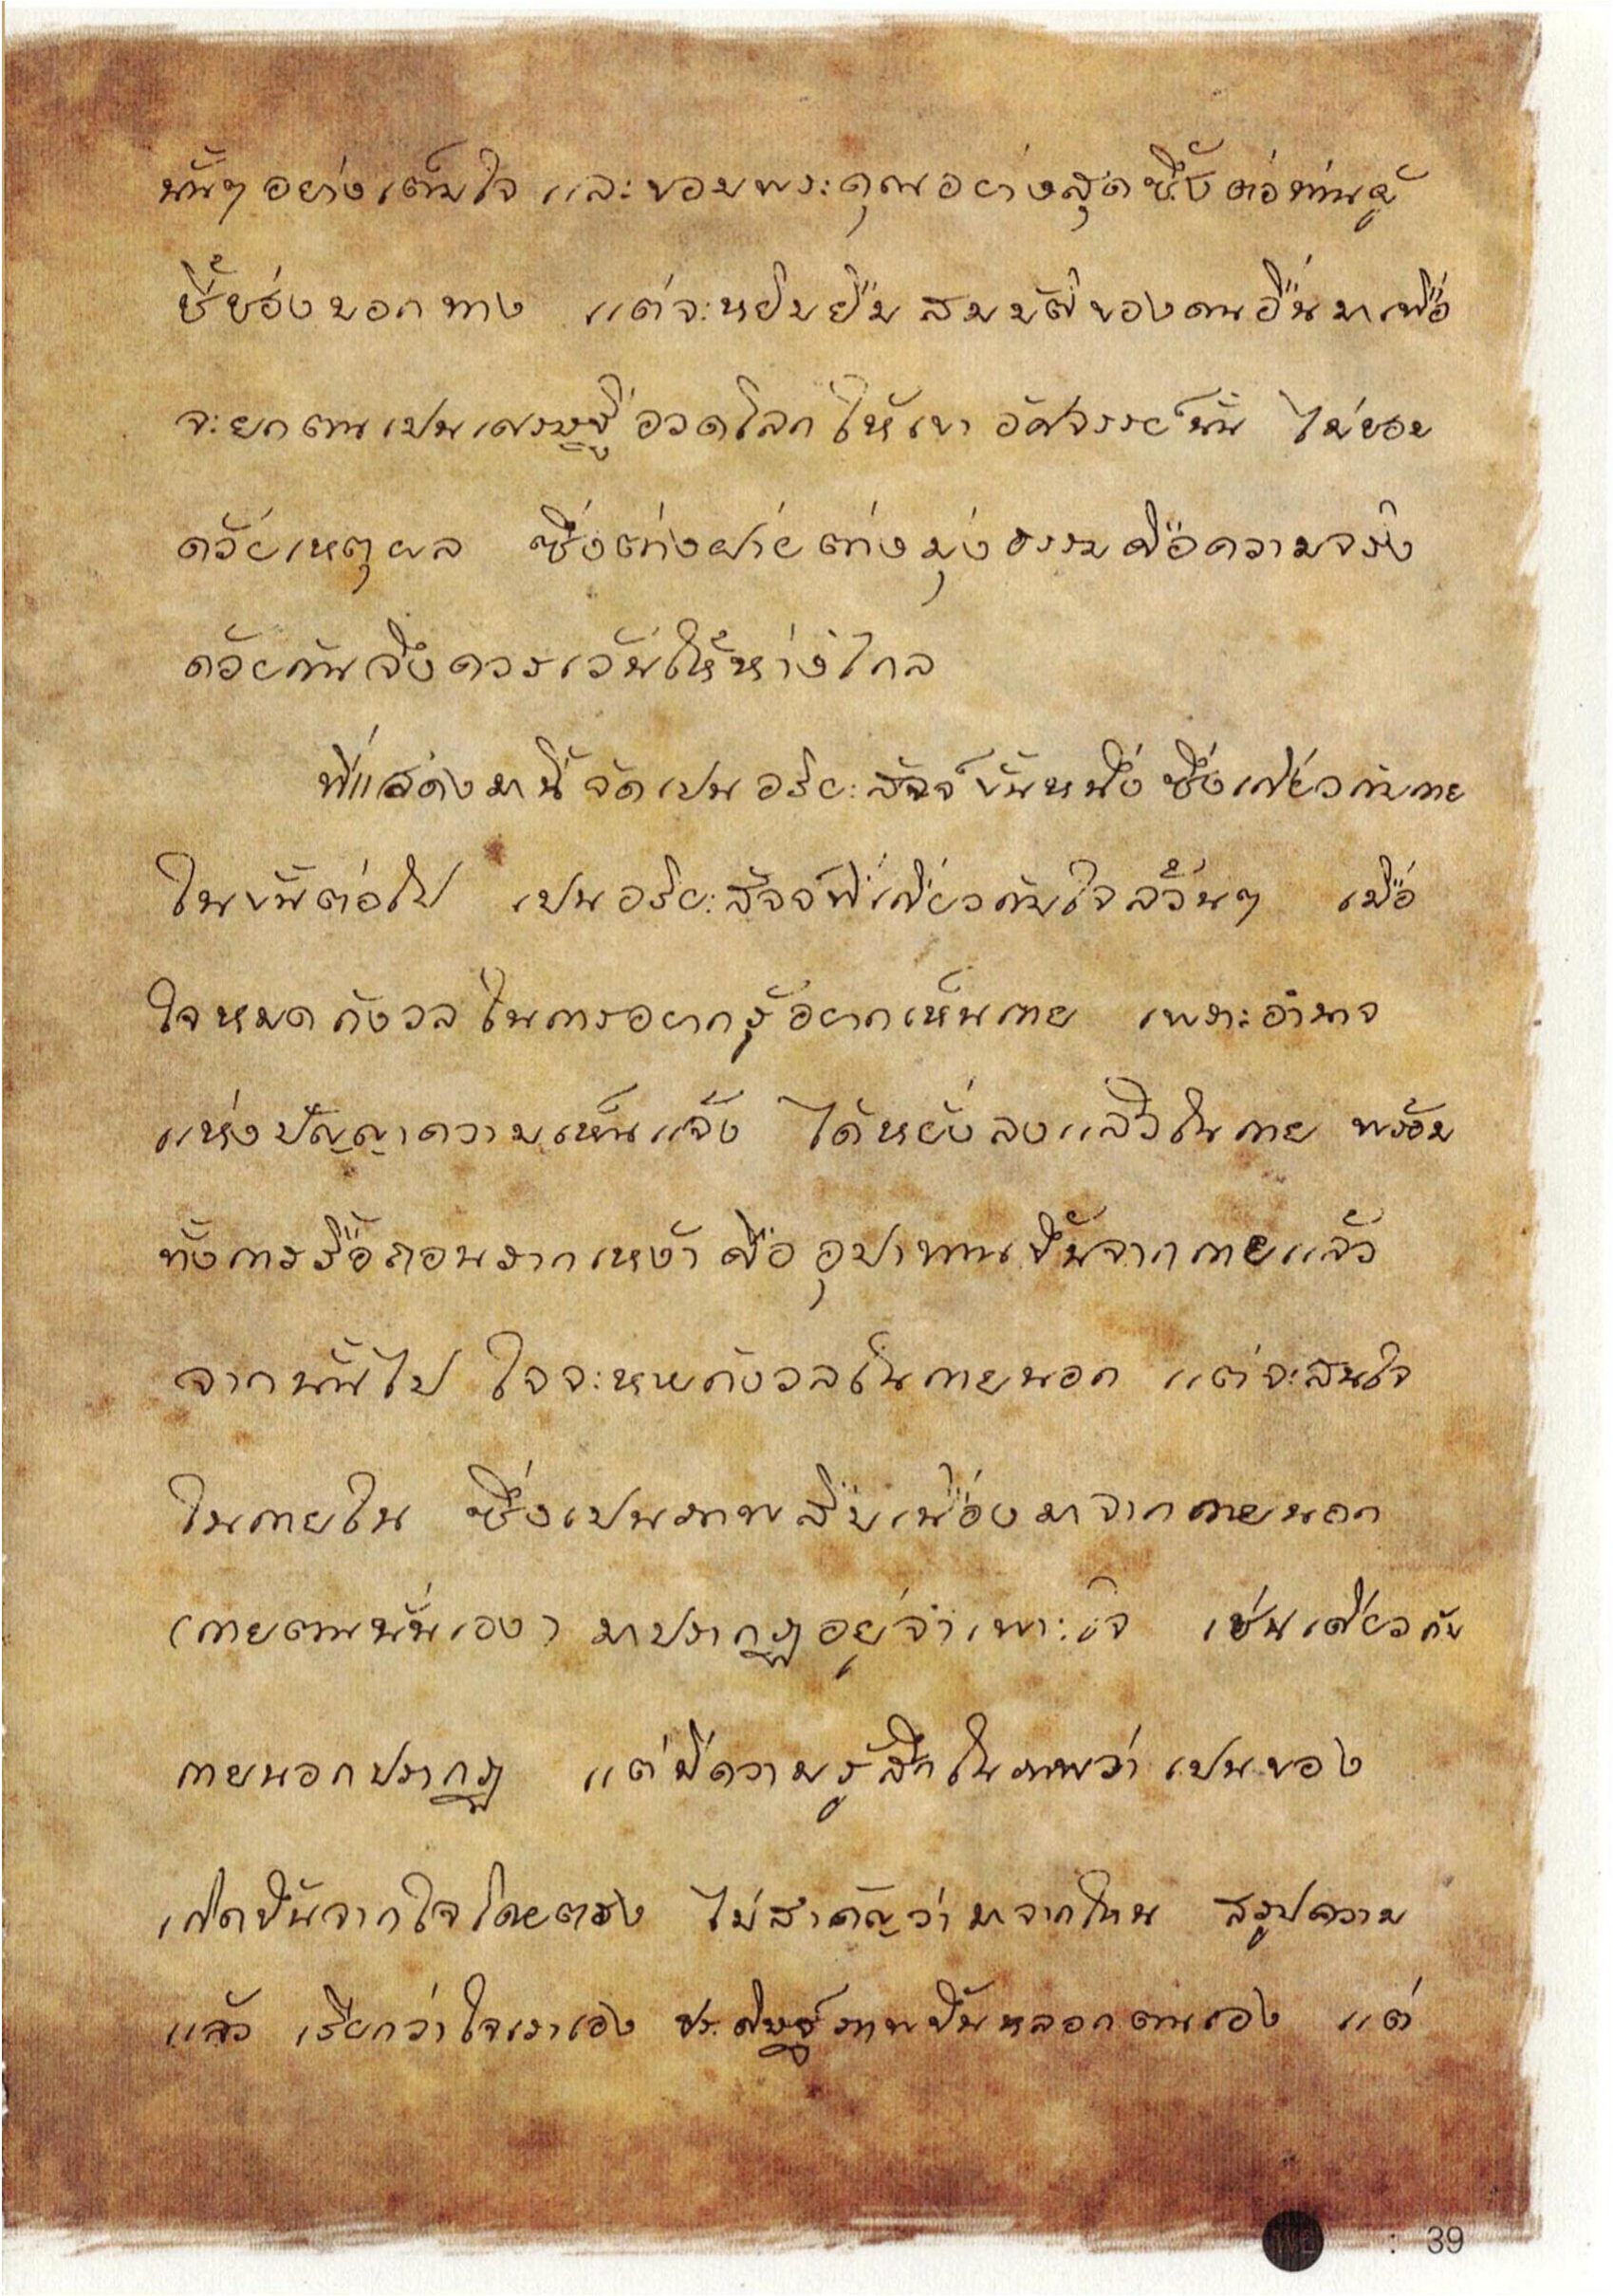 นั้นๆ อย่างเต็มใจ และขอบพระคุณอย่างสุดซึ้งต่อท่านผู้
ชี้ช่องบอกทาง แต่จะหยิบยืมสมบัติของคนอื่นมาเพื่อ
จะยกตนเปนเศรษฐีอวดโลกให้เขาอัศจรรย์นั้น ไม่ชอบ
ด้วยเหตุผล ซึ่งต่างฝ่ายต่างมุ่งธรรมคือความจริง
ด้วยกันจึงควรเว้นให้ห่างไกล
ที่แสดงมานี้จัดเปนอริยะสัจจ์ขั้นหนึ่ง ซึ่งเกี่ยวกับกาย
ในขั้นต่อไป เปนอริยะสัจจ์ที่เกี่ยวกับใจล้วนๆ เมื่อ
ใจหมดกังวลในการอยากรู้อยากเห็นกาย เพราะอำนาจ
แห่งปัญญาความเห็นแจ้ง ได้หยั่งลงแล้วในกาย พร้อม
ทั้งการรื้อถอนรากเหง้า คืออุปาทานขึ้นจากกายแล้ว
จากนั้นไป ใจจะหมดกังวลในกายนอก แต่จะสนใจ
ในกายใน ซึ่งเปนภาพสืบเนื่องมาจากกายนอก
(กายตนนั่นเอง) มาปรากฏอยู่จำเพาะใจ เช่นเดียวกับ
กายนอกปรากฏ แต่มีความรู้สึกในภาพว่าเปนของ
เกิดขึ้นจากใจโดยตรง ไม่สำคัญว่ามาจากไหน สรุปความ
แล้ว เรียกว่าใจเราเอง ประดิษฐ์ภาพขึ้นหลอกตนเอง แต่
: 39